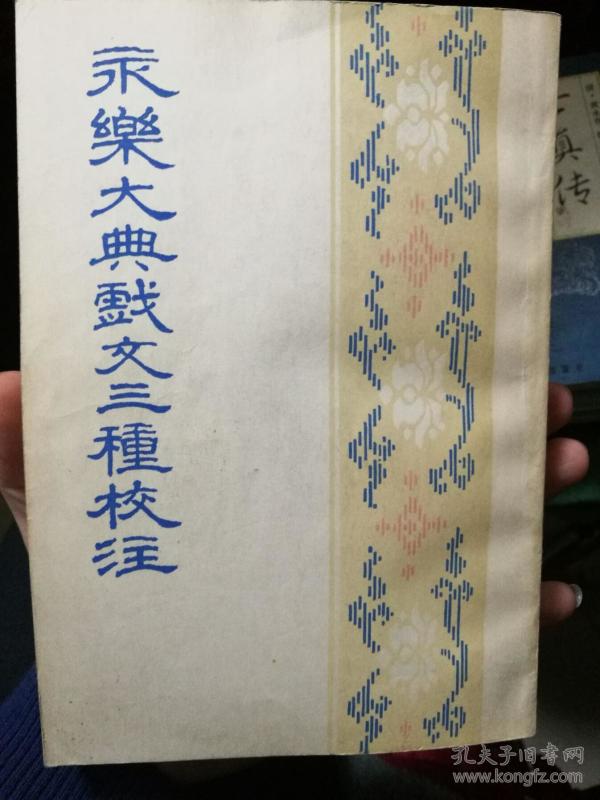 永樂大典戲文三種校注
真传
孔夫子旧书网
www.kongfz.com